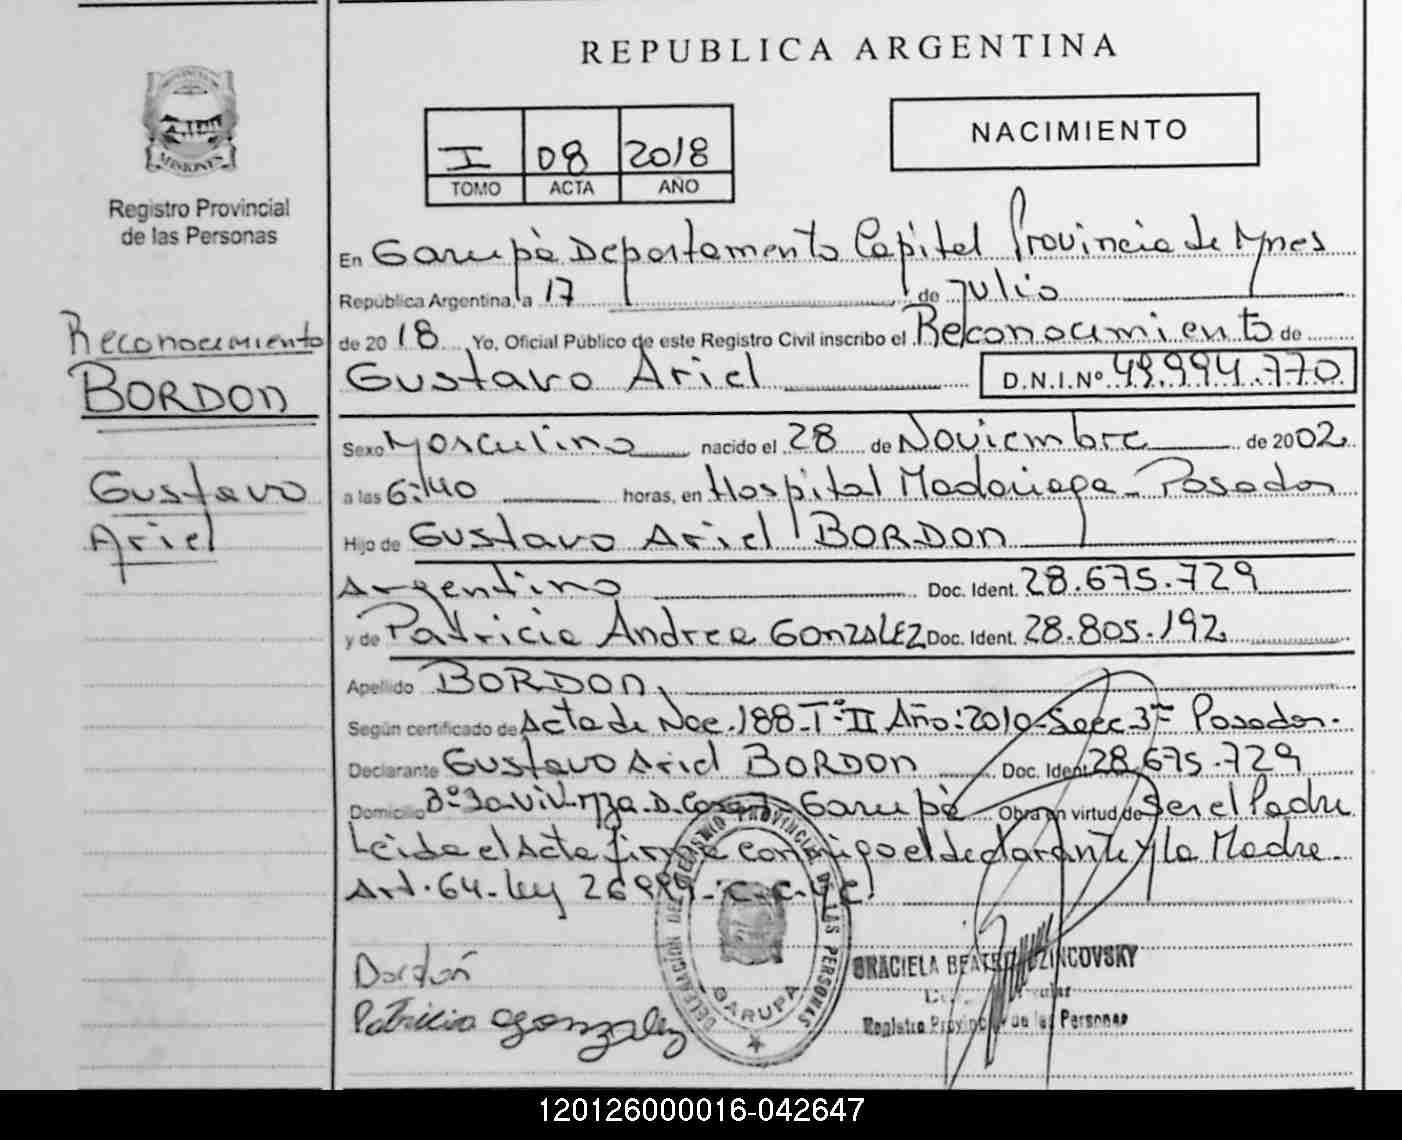 REPUBLICA ARGENTINA
MISIONES
Registro Provincial
de las Personas
I 08 2018
TOMO ACTA AÑO
NACIMIENTO
Reconocimiento
BORDON
Gustavo
Ariel
En Garupà Departamento Capital Provincia de Mnes
República Argentina, a 17 de Julio
de 2018 Yo, Oficial Público de este Registro Civil inscribo el Reconocimiento de
Gustavo Ariel D.N.I.Nº 49.994.770
Sexo Masculino nacido el 28 de Noviembre de 2002
a las 6:40 horas, en Hospital Madariaga - Posadas
Hijo de Gustavo Ariel BORDON
Argentino Doc. Ident. 28.675.729
y de Patricia Andrea GONZALEZ Doc. Ident. 28.805.192
Apellido BORDON
Según certificado de Acta de Nac. 188-Tº II Año: 2010-Secc 3º Posadas.
Declarante Gustavo Ariel BORDON Doc. Ident 28.675.729
Domicilio Garupà Obra en virtud de Ser el Padre
Leida el Acta firma conmigo el declarante y la Madre.
Art. 64 - Ley 26994 - C.C.y C.
Bordon
Patricia Gonzalez
DELEGACION DEL REGISTRO PROVINCIAL DE LAS PERSONAS
GARUPA
GRACIELA
Registro Provincial de las Personas
120126000016-042647